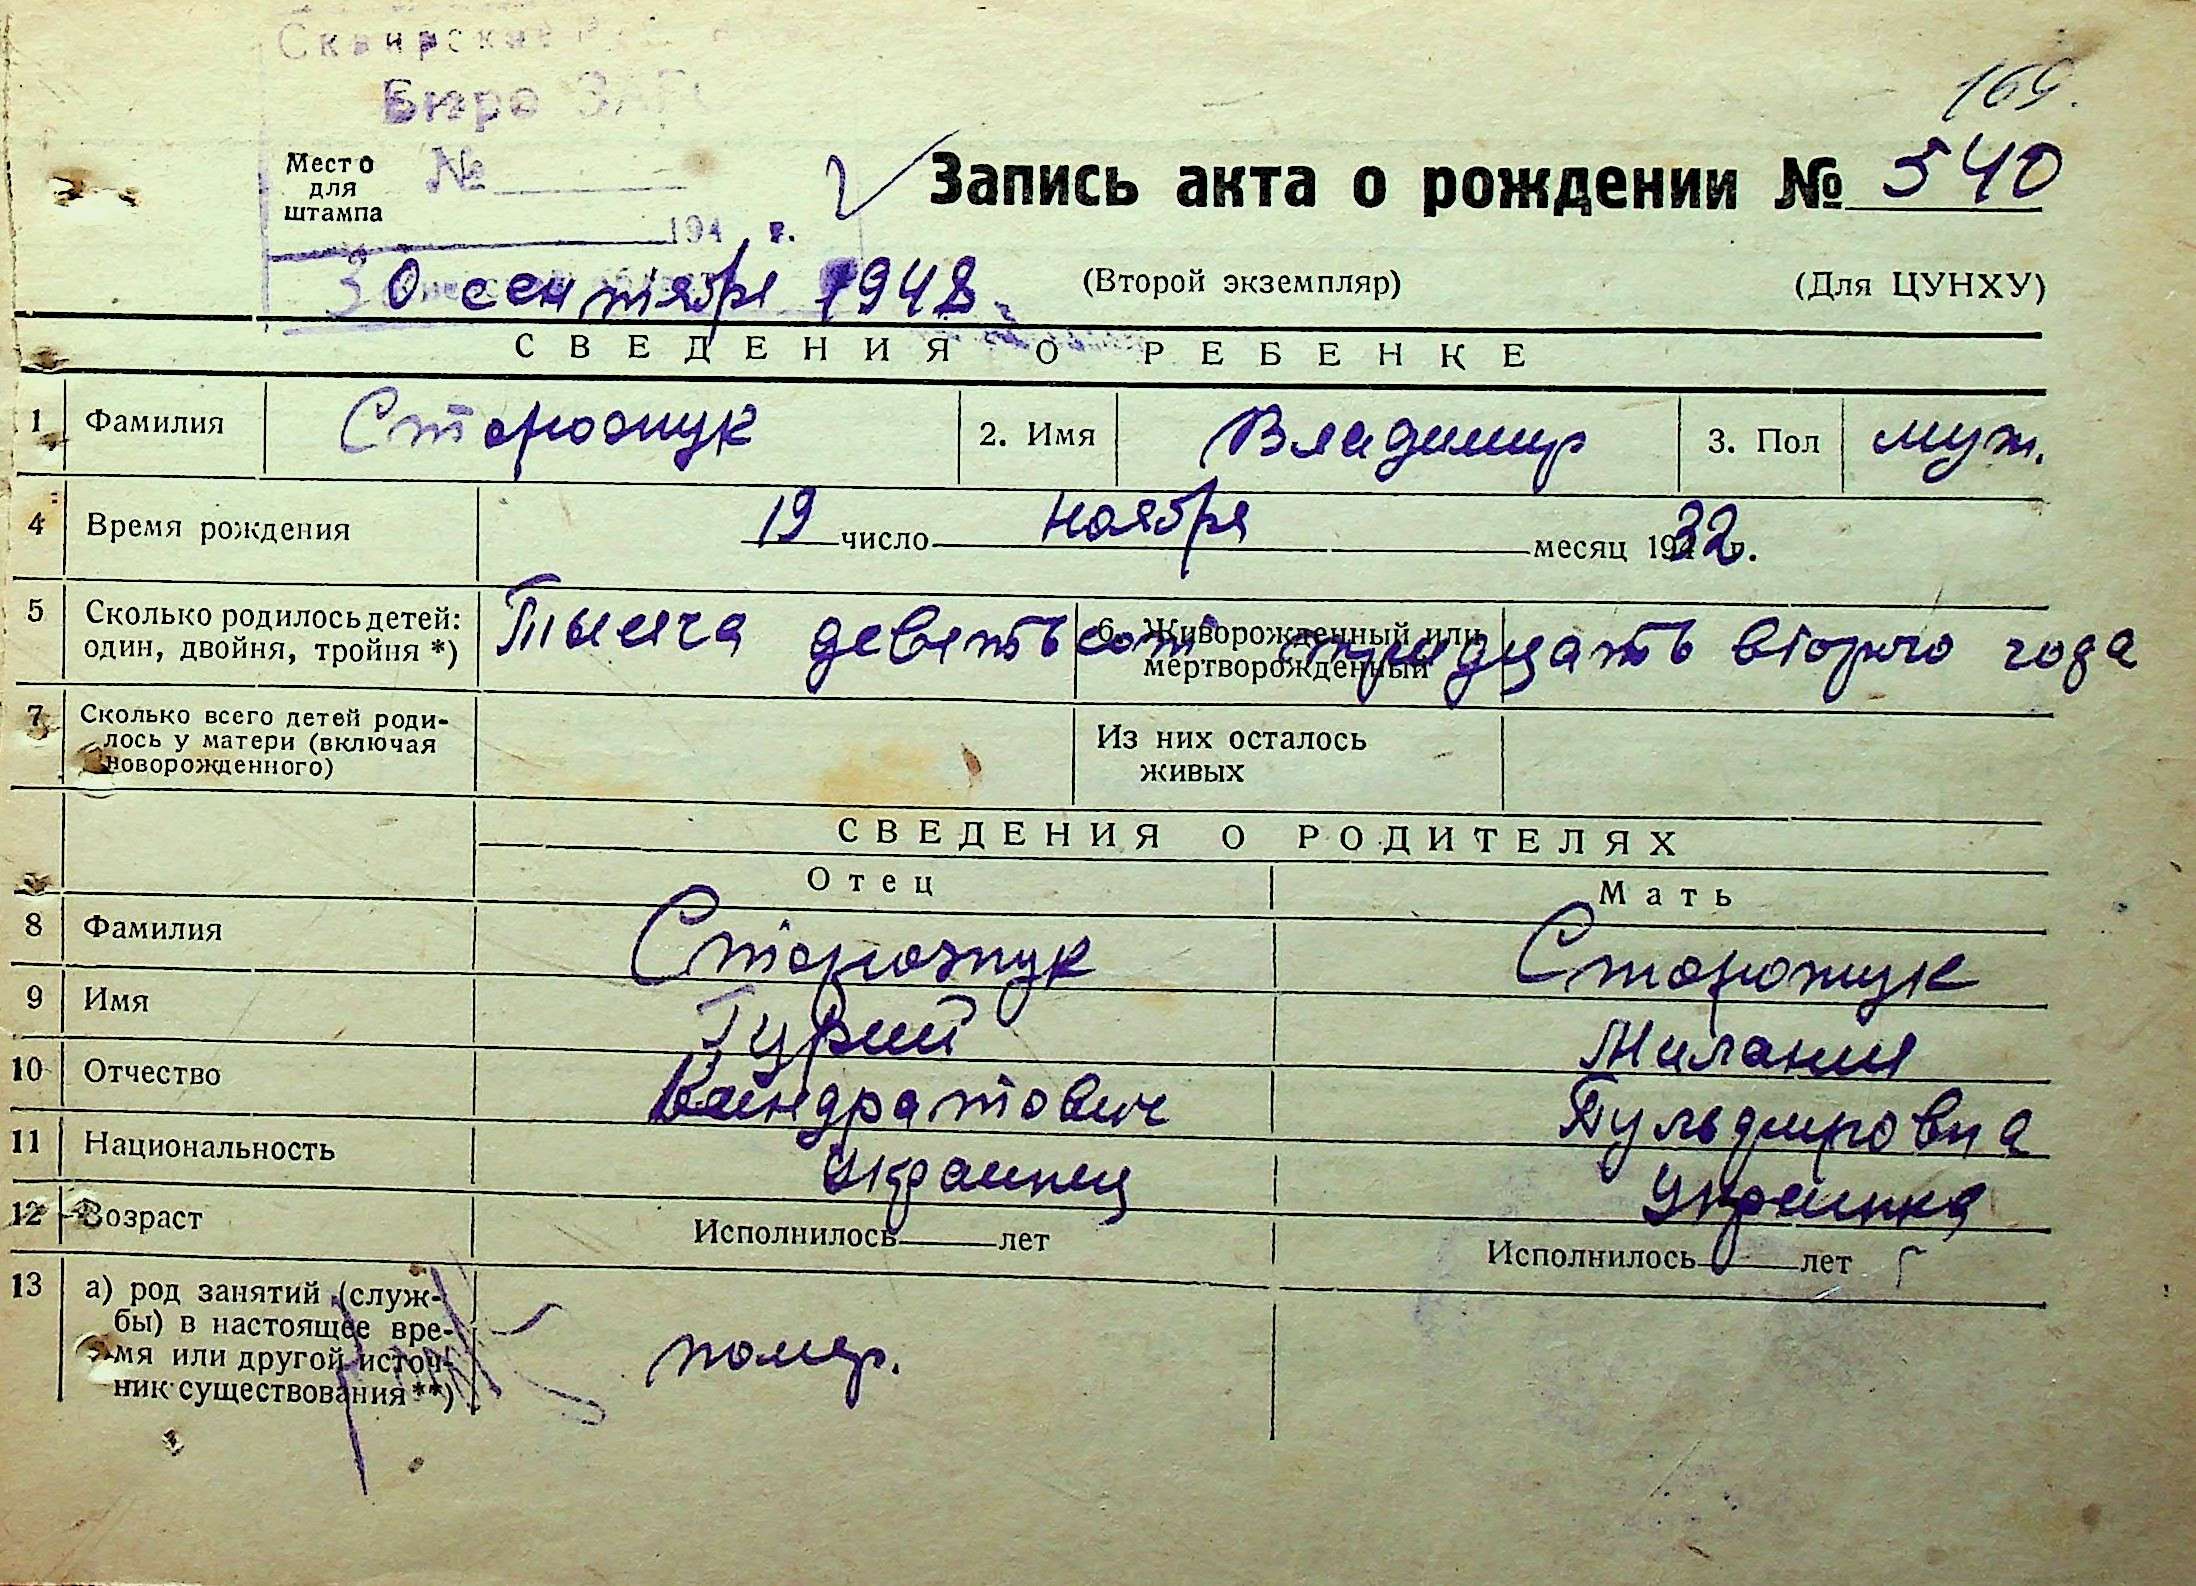 Бюро ЗАГС
169.
Место для штампа
№
194 г.
Запись акта о рождении № 540
30 сентября 1948
(Второй экземпляр) (Для ЦУНХУ)
СВЕДЕНИЯ О РЕБЕНКЕ
1 Фамилия Сторожук 2. Имя Владимир 3. Пол муж.
4 Время рождения 19 число ноября месяц 1932 г.
5 Сколько родилось детей: один, двойня, тройня *) Тысяча девятьсот тридцать второго года
6. Живорожденный или мертворожденный
7 Сколько всего детей роди-
лось у матери (включая
новорожденного)
Из них осталось
живых
СВЕДЕНИЯ О РОДИТЕЛЯХ
Отец Мать
8 Фамилия Сторожук Сторожук
9 Имя Гурий Милания
10 Отчество Кандратович
11 Национальность Украинец Украинка
12 Возраст Исполнилось лет Исполнилось лет
13 а) род занятий (служ-
бы) в настоящее вре-
мя или другой источ-
ник существования **)
помер.